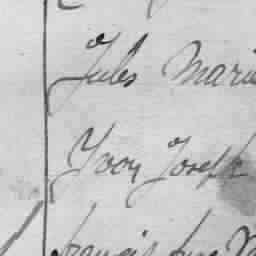 Jules Marie
Yvon Joseph
francis